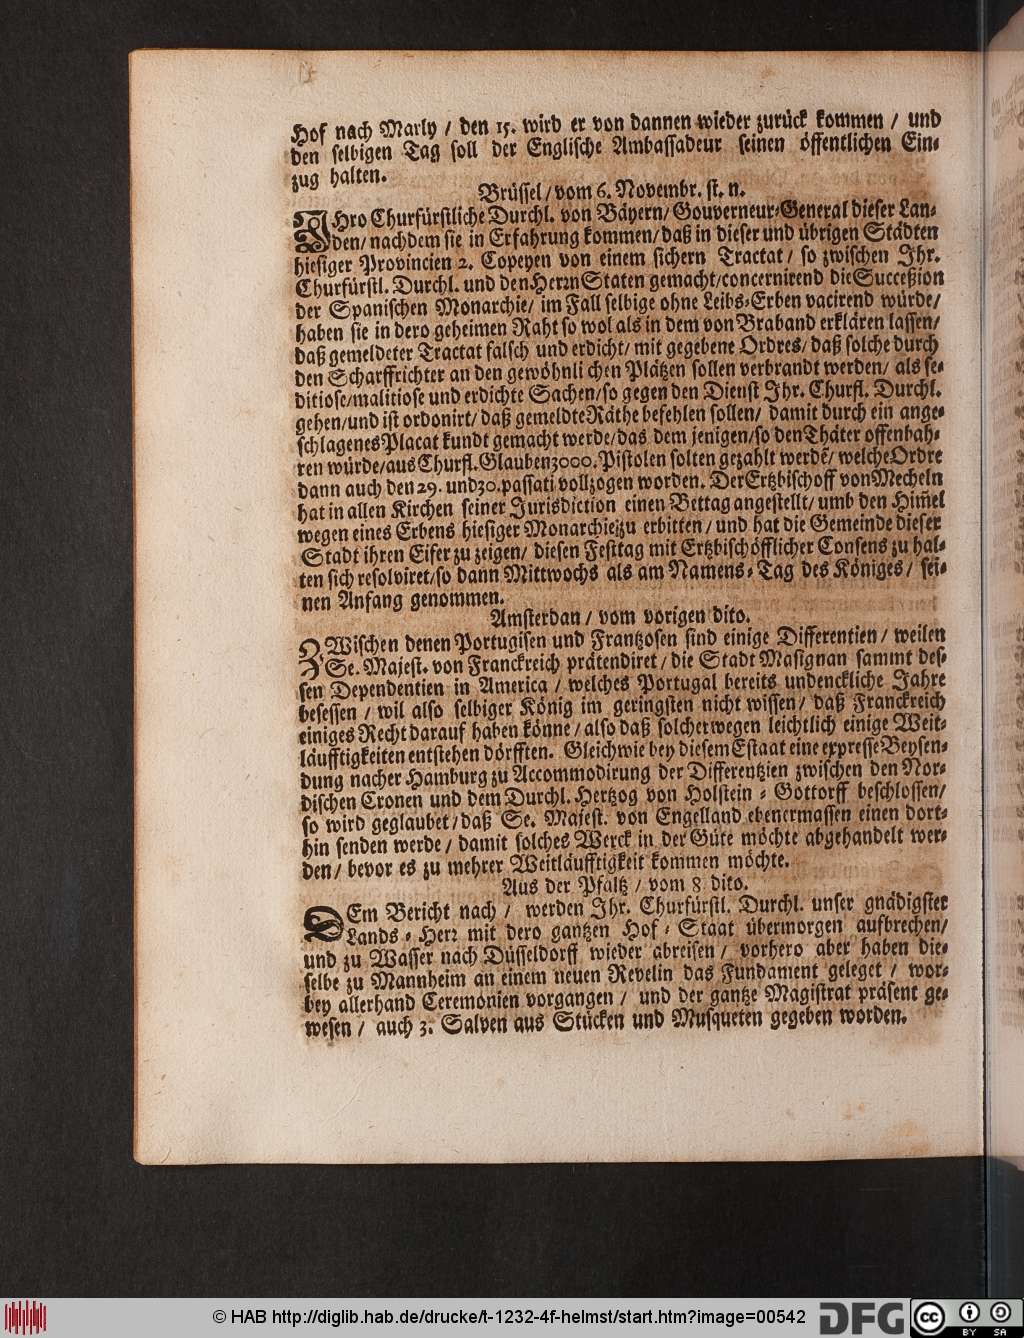 Hof nach Marly / den 15. wird er von dannen wieder zurück kommen / und
den selbigen Tag soll der Englische Ambassadeur seinen öffentlichen Ein-
zug halten.
Brüssel / vom 6. Novembr. st. n.
IHro Churfürstliche Durchl. von Bäyern / Gouverneur-General dieser Lan-
den / nachdem sie in Erfahrung kommen / daß in dieser und übrigen Städten
hiesiger Provincien 2. Copeyen von einem sichern Tractat / so zwischen Ihr.
Churfürstl. Durchl. und den Herrn Staten gemacht / concernirend die Succeßion
der Spanischen Monarchie / im Fall selbige ohne Leibs-Erben vacirend würde /
haben sie in dero geheimen Raht so wol als in dem von Braband erklären lassen /
daß gemeldeter Tractat falsch und erdicht / mit gegebene Ordres / daß solche durch
den Scharffrichter an den gewöhnli chen Plätzen sollen verbrandt werden / als se-
ditiose / malitiose und erdichte Sachen / so gegen den Dienst Ihr. Churfl. Durchl.
gehen / und ist ordonirt / daß gemeldte Räthe befehlen sollen / damit durch ein ange-
schlagenes Placat kundt gemacht werde / das dem jenigen / so den Thäter offenbah-
ren würde / aus Churfl. Glauben 3000. Pistolen solten gezahlt werdē / welche Ordre
dann auch den 29. und 30. passati vollzogen worden. Der Ertzbischoff von Mecheln
hat in allen Kirchen seiner Jurisdiction einen Bettag angestellt / umb den Him̄el
wegen eines Erbens hiesiger Monarchie zu erbitten / und hat die Gemeinde dieser
Stadt ihren Eifer zu zeigen / diesen Festtag mit Ertzbischöfflicher Consens zu hal-
ten sich resolviret / so dann Mittwochs als am Namens-Tag des Königes / sei-
nen Anfang genommen.
Amsterdan / vom vorigen dito.
ZWischen denen Portugisen und Frantzosen sind einige Differentien / weilen
Se. Majest. von Franckreich prätendiret / die Stadt Masignan sammt des-
sen Dependentien in America / welches Portugal bereits undenckliche Jahre
besessen / wil also selbiger König im geringsten nicht wissen / daß Franckreich
einiges Recht darauf haben könne / also daß solcherwegen leichtlich einige Weit-
läufftigkeiten entstehen dörfften. Gleichwie bey diesem Estaat eine expresse Beysen-
dung nacher Hamburg zu Accommodirung der Differentzien zwischen den Nor-
dischen Cronen und dem Durchl. Hertzog von Holstein-Gottorff beschlossen /
so wird geglaubet / daß Se. Majest. von Engelland ebenermassen einen dort-
hin senden werde / damit solches Werck in der Güte möchte abgehandelt wer-
den / bevor es zu mehrer Weitläufftigkeit kommen möchte.
Aus der Pfaltz / vom 8 dito.
DEm Bericht nach / werden Ihr. Churfürstl. Durchl. unser gnädigster
Lands-Herr mit dero gantzen Hof-Staat übermorgen aufbrechen /
und zu Wasser nach Düsseldorff wieder abreisen / vorhero aber haben die-
selbe zu Mannheim an einem neuen Revelin das Fundament geleget / wor-
bey allerhand Ceremonien vorgangen / und der gantze Magistrat präsent ge-
wesen / auch 3. Salven aus Stücken und Musqueten gegeben worden.
© HAB http://diglib.hab.de/drucke/t-1232-4f-helmst/start.htm?image=00542
DFG
cc
BY SA